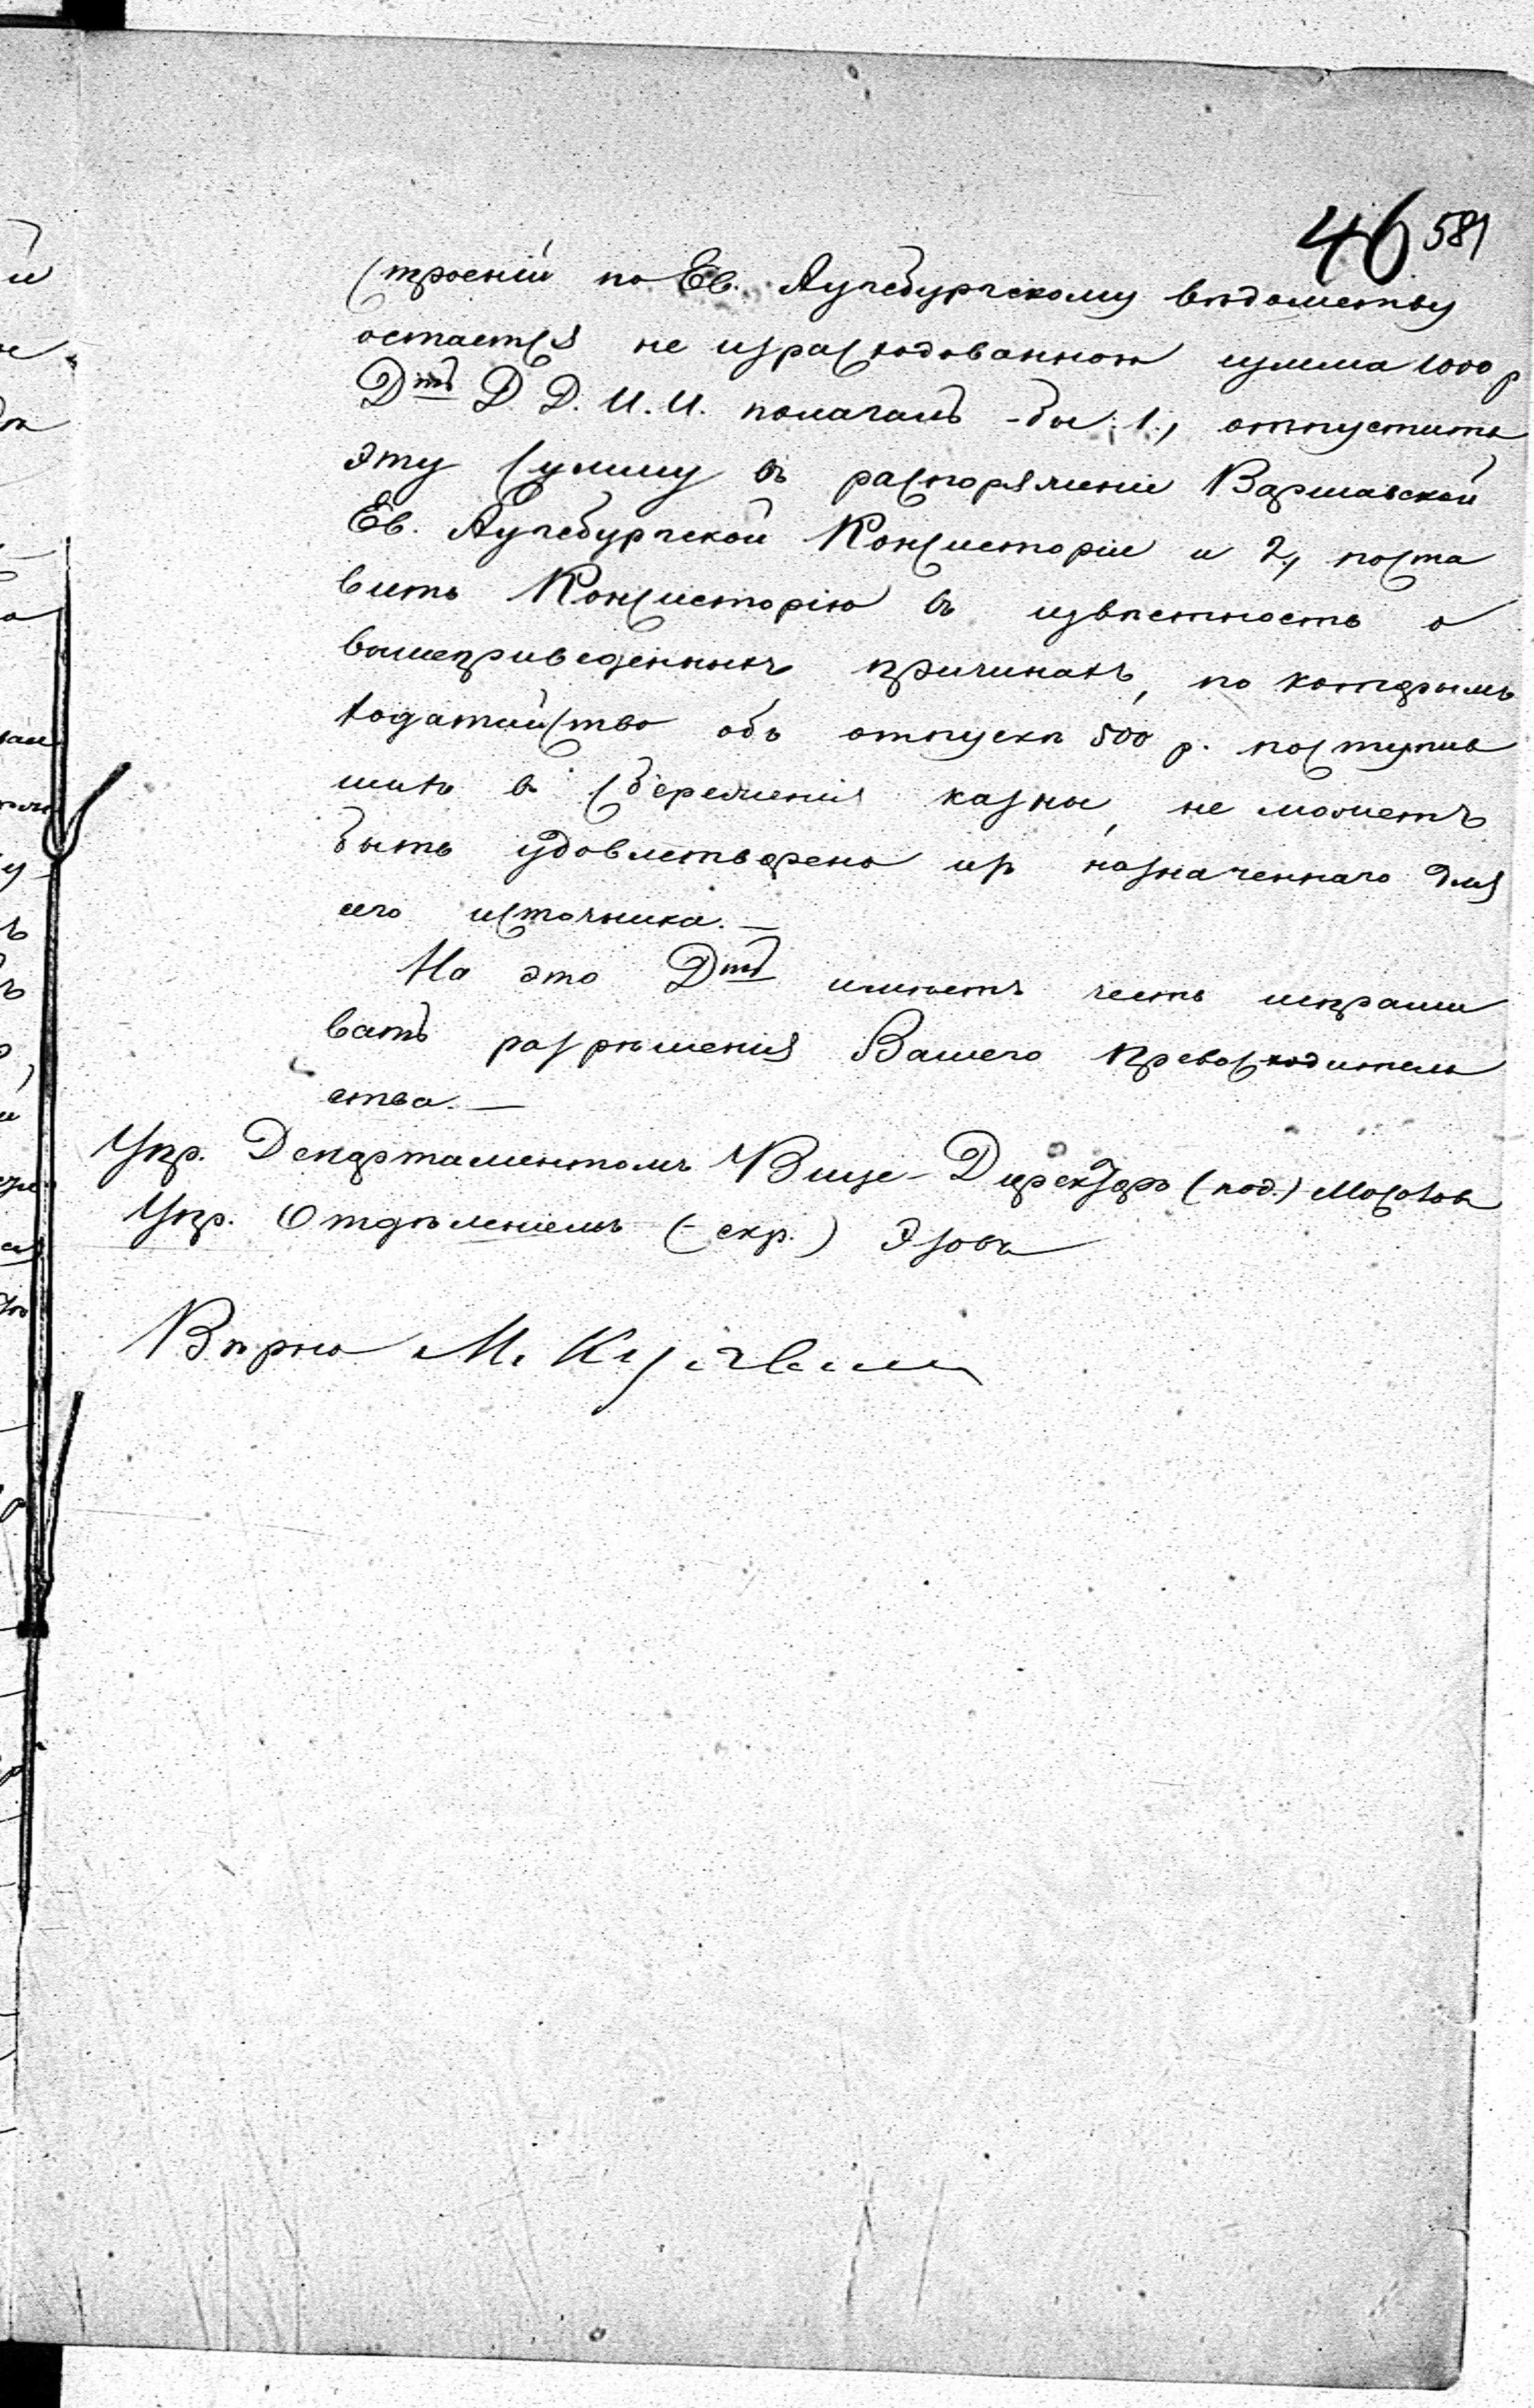 46 581
строеній по Ев. Аугсбургскому вѣдомству
остается не израсходованною сумма 1000 р
Дтъ Д. Д. И. И. полагалъ-бы: 1., отпустить
эту сумму въ распоряженіе Варшавской
Ев. Аугсбургской Консисторіи и 2., поста
вить Консисторію въ извѣстность о
вышеприведенныхъ причинахъ, по которымъ
ходатайство объ отпускѣ 500 р. поступив
шихъ въ сбереженія казны, не можетъ
быть удовлетворено изъ назначеннаго для
сего источника. —
На это Дтъ имѣетъ честь испраши
вать разрѣшенія Вашего Превосходитель
ства. —
Упр. Департаментомъ Вице-Директоръ (под.) Мосоловъ
Упр. Отдѣленіемъ (-скр.) Эзовъ
Вѣрно М.